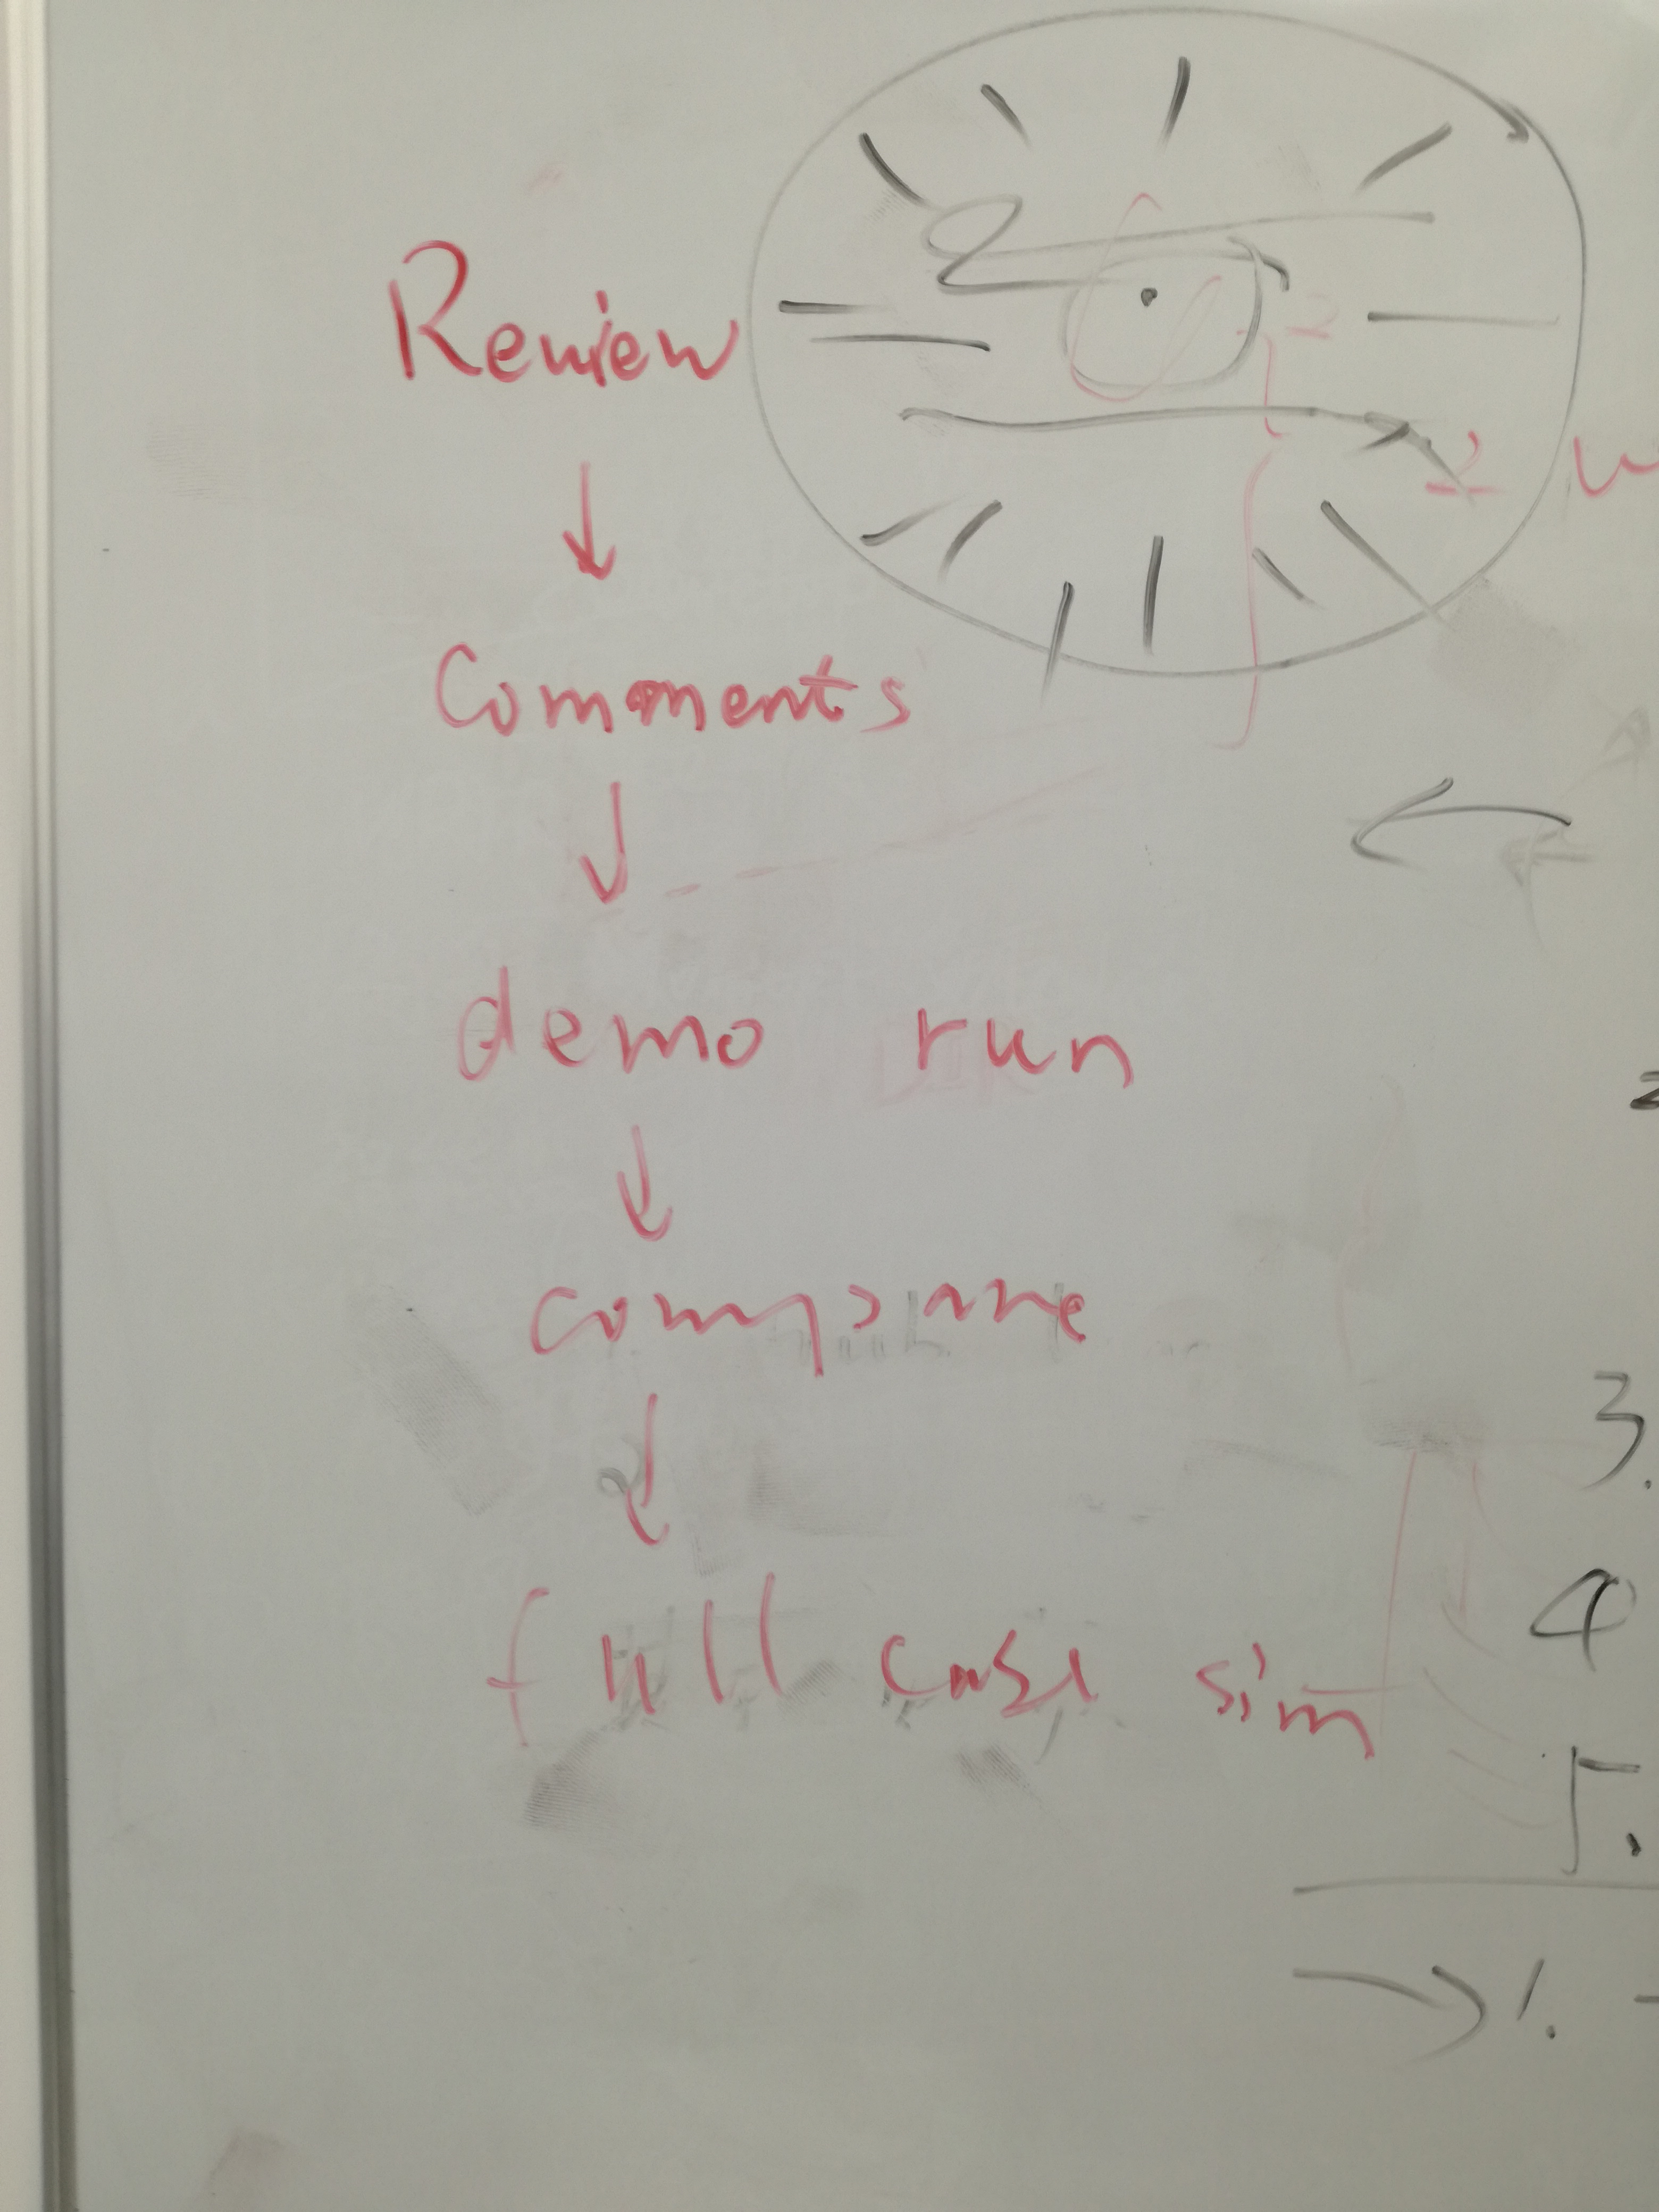 Review
↓
Comments
↓
demo run
↓
compare
↓
full case sim
3.
4
5.
→ 1.